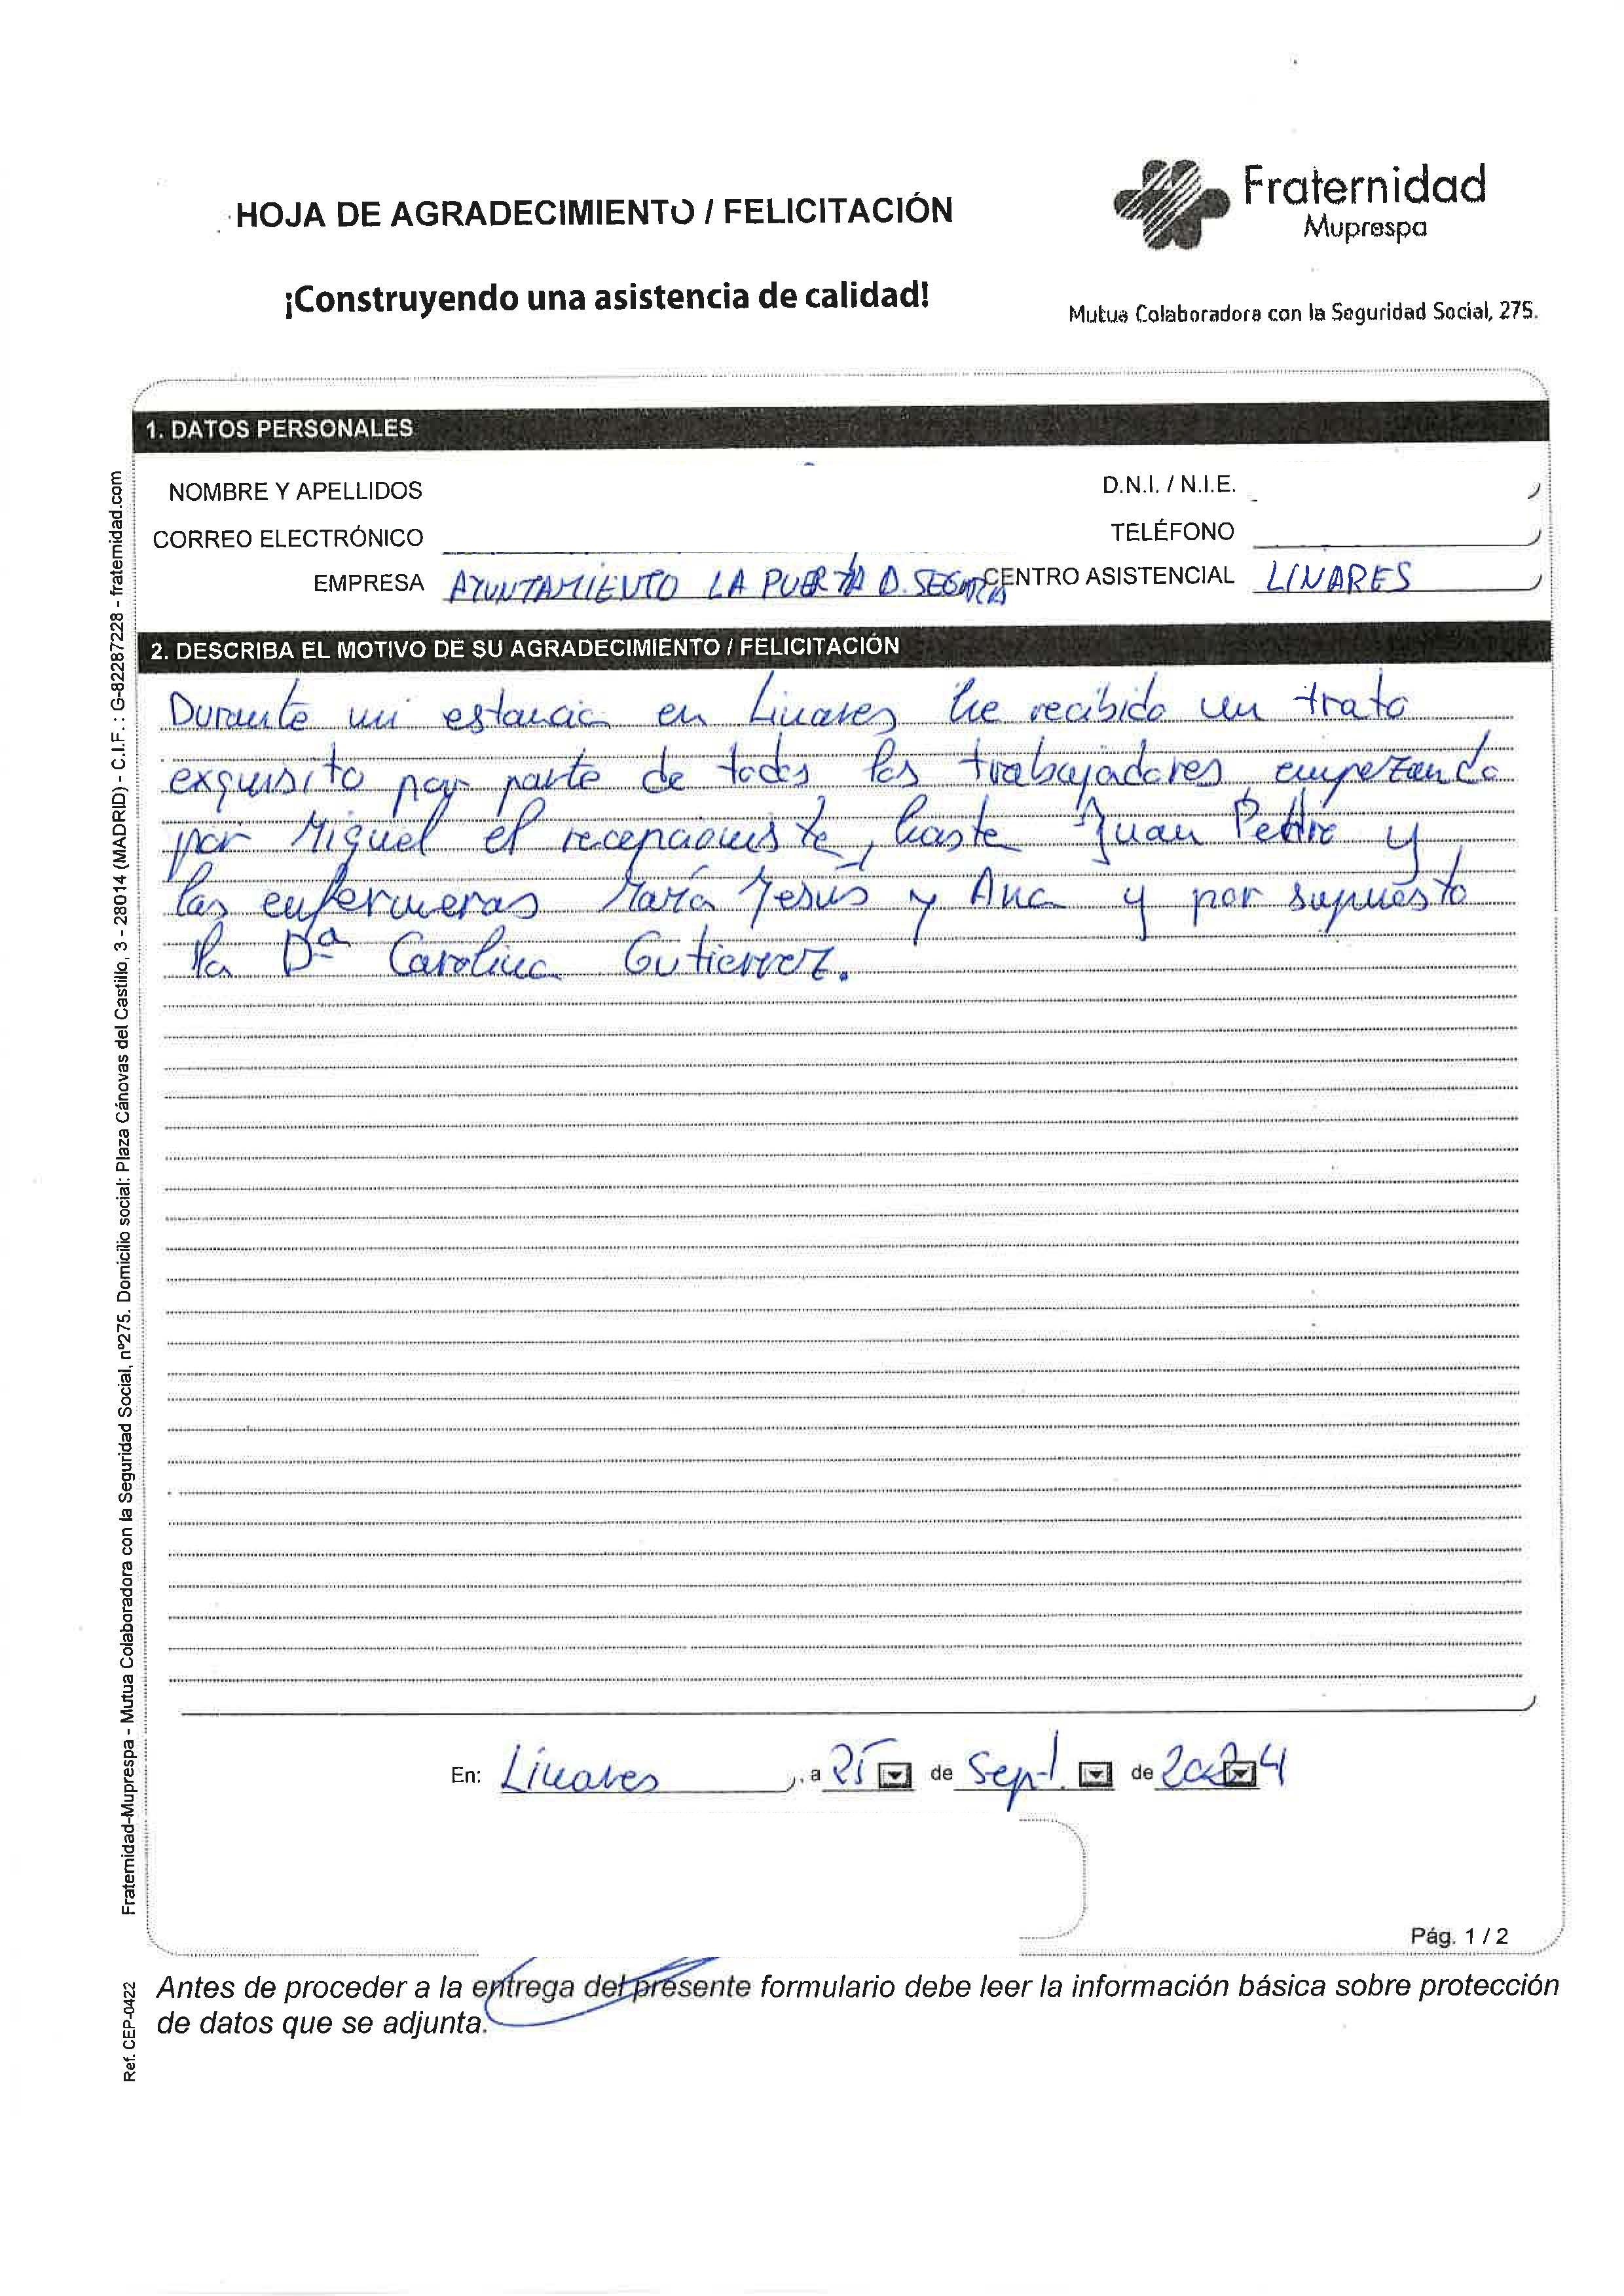 HOJA DE AGRADECIMIENTO / FELICITACIÓN
Fraternidad
Muprespa
¡Construyendo una asistencia de calidad!
Mutua Colaboradora con la Seguridad Social, 275.
1. DATOS PERSONALES
NOMBRE Y APELLIDOS
D.N.I. / N.I.E.
CORREO ELECTRÓNICO
TELÉFONO
EMPRESA AYUNTAMIENTO LA PUERTA D. SEGURA
CENTRO ASISTENCIAL LINARES
2. DESCRIBA EL MOTIVO DE SU AGRADECIMIENTO / FELICITACIÓN
Durante mi estancia en Linares he recibido un trato
exquisito por parte de todos los trabajadores, empezando
por Miguel el recepcionista, hasta Juan Pedro y
las enfermeras María Jesús y Ana y por supuesto
la Dª Carolina Gutierrez.
En: Linares, a 25 de Sept. de 2024
Pág. 1 / 2
Antes de proceder a la entrega del presente formulario debe leer la información básica sobre protección
de datos que se adjunta.
Fraternidad-Muprespa - Mutua Colaboradora con la Seguridad Social, nº275. Domicilio social: Plaza Cánovas del Castillo, 3 - 28014 (MADRID) - C.I.F. : G-82287228 - fraternidad.com
Ref. CEP-0422